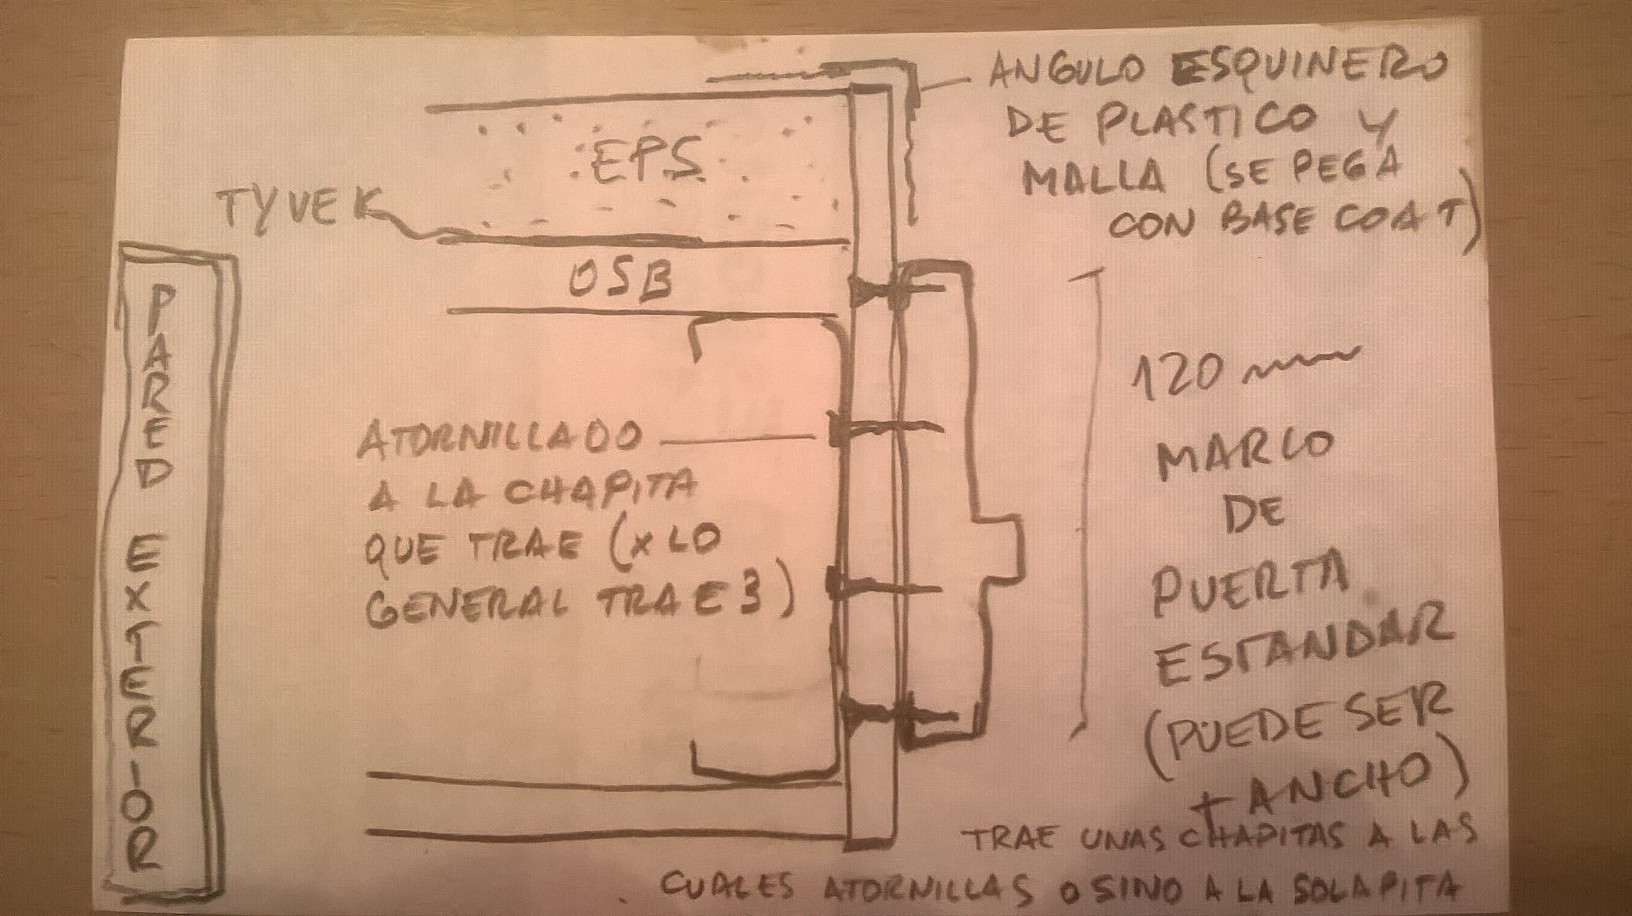 ANGULO ESQUINERO
DE PLASTICO Y
MALLA (SE PEGA
CON BASE COAT)
EPS
TYVEK
OSB
PARED EXTERIOR
ATORNILLADO
A LA CHAPITA
QUE TRAE (X LO
GENERAL TRAE 3)
120 mm
MARCO
DE
PUERTA
ESTANDAR
(PUEDE SER
+ ANCHO)
TRAE UNAS CHAPITAS A LAS
CUALES ATORNILLAS O SINO A LA SOLAPITA